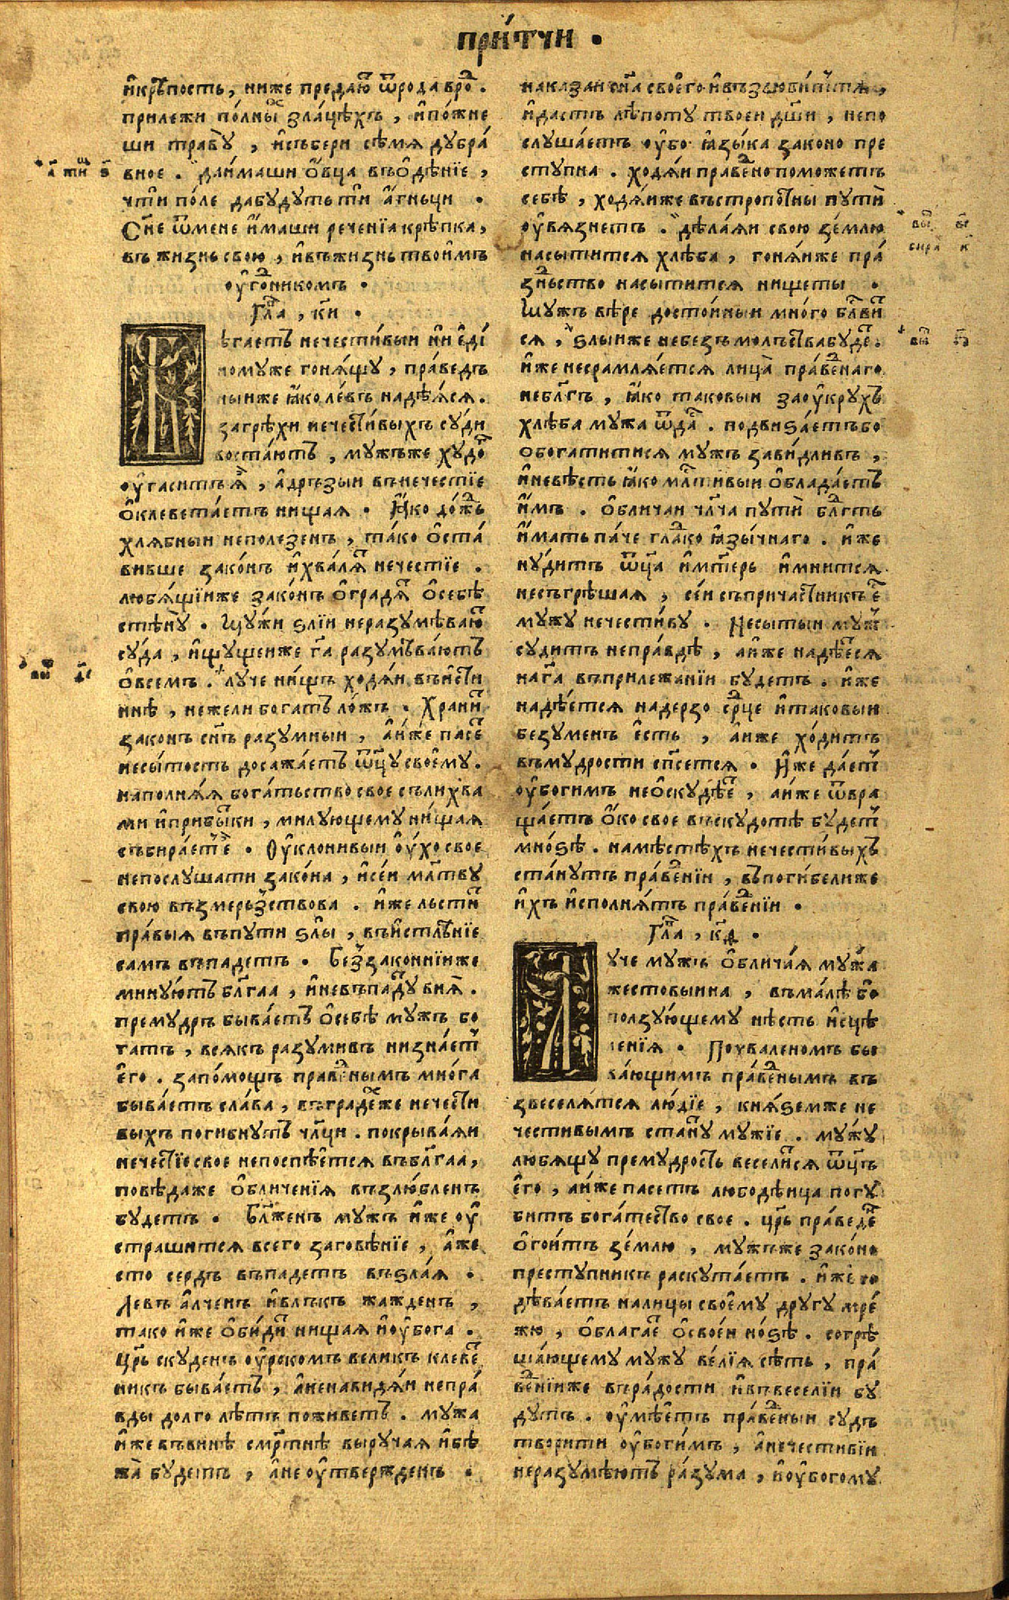 при́тчи .
и҆крѣпость, ниже предаю҆ ѿрода
прилежи по́лны зла́цѣхъ , и҆по́жне
ши траву̀ , и҆събери сѣмя дубра́
вное . да и҆маши о҆вца въо҆дѣнїе ,
чти по́ле дабудуть ти а҆гньци .
Сн҃е ѿмене и҆маши реченїа крѣпка ,
въ жизнь свою , и҆въжизнь твои҆мъ
Гла , ки .
ѣгаетъ нечести́выи ни є҆ди́
ному же гоня́щу , пра́ведъ
ныи же ꙗ҆ко ле́въ надѣ́яся .
за грѣхи нечести́выхъ суди
воста́ютъ , мужъже худо
ѹ҆гаситъ ꙗ҆ , а҆дръзыи внечестїе
о҆клевета́етъ нищая . ꙗ҆ко до́ждь
хля́бныи неполезенъ , та́ко о҆ста́
вивше зако́нъ и҆хва́ля нечестїе .
любя́щїи же зако́нъ о҆градя о҆себѣ
стѣ́ну . Му́жи ѕлїи неразумѣваю
суда , и҆щущеи же га разумѣва́ютъ
о҆всемъ . лу́че нищъ ходяи въи҆сти
ннѣ , нежели богатъ ло́жъ . Храни
законъ сн҃ъ разумныи , а҆и҆же пасе
несытость досажа́етъ ѿц҃у своє҆му .
наполня́я бога́тьство свое слихва
ми и҆прибытки , милующему ни́щая
събира́етъ є҆ . Ѹ҆клонивыи ѹ҆хо свое
непослушати зако́на , и҆сеи млт҃ву
свою възмерьзствова . и҆же льсти
пра́выя въпути ѕлы̀ , въи҆стлѣнїе
самъ въпадетъ . Безаконнїи же
мину́ютъ благаа , и҆невъпаду вня .
премудръ быва́етъ о҆себѣ мужъ бо
гатъ , всякъ разумивъ низнаетъ
є҆го . запо́мощъ праве́нымъ мно́га
быва́етъ сла́ва , въградѣже нечести
выхъ погибнутъ чл҃ци . покрыва́яи
нечестїе свое непоспѣется въблагаа,
повѣдаже о҆бличенїя възлюбленъ
будетъ . Блаженъ мужъ и҆же ѹ҆
страшится всего заговѣнїе , а҆же
сто сердъ въпадетъ въѕла́я .
Левъ а҆лченъ и҆влъкъ жажденъ ,
тако и҆же о҆би́ди нищая и҆ѹ҆бога .
Цр҃ь скуденъ ѹ҆рокомъ великъ клеве
никъ быва́етъ , а҆ненавидя́и непра́
вды долго лѣтъ поживетъ . мужа
и҆же въвинѣ смр҃тнѣ выручая и҆бѣ
жа будетъ , а҆не ѹ҆твержденъ .
наказаи сн҃а своє҆го и҆възлюбитъ тя ,
и҆дастъ лѣпоту твоеи дш҃и , непо
слушаетъ ѹ҆бо ꙗ҆зы́ка законо пре
ступна . ходя́и праве́но поможетъ
себѣ , ходя́иже въстропотны пути̑
ѹ҆вязнетъ . дѣлаяи свою зе́млю
насытится хлѣба , гоня́иже пра́
зньство насытится нищеты .
Мужъ вѣре досто́ины много благви
ся , ѕлыиже небезъ молъствабуде .
и҆же несрамляется лица пра́венаго
неблгъ , ꙗ҆ко таковыи заѹ҆крухъ
хлѣба мужа ѿда . подвиѕаетъбо
обогатитися мужъ зави́дливъ ,
и҆невѣсть ꙗ҆ко млт҃ивыи о҆блада́етъ
и҆мъ . о҆бличаи чл҃ча пути̑ блгть
и҆мать па́че глако ꙗ҆зы́чнаго . и҆же
ну́дитъ ѿц҃а и҆м҃терь и҆мнится
несъгрѣшая , се́и съпричастникъ є
мужу нечести́ву . Несытыи муж
судитъ непра́вдѣ , а҆и҆же надѣеся
на га въприлежа́нїи будетъ . и҆же
надѣ́ется надерзо ср҃це и҆таковыи
безуменъ є҆сть , а҆и҆же ходитъ
въмудрости спсется . И҆же да́етъ
ѹ҆богимъ нео҆скудѣе , а҆и҆же ѿвра
ща́етъ о҆ко свое въскудотѣ будетъ
мноѕѣ . намѣстѣхъ нечести́выхъ
ста́нутъ пра́венїи , въпогибелиже
и҆хъ и҆сполнятъ пра́венїи .
Гла , кѳ .
уче мужъ о҆бличая мужа
жестовыина , въма́лѣ бо
ползу́ющему нѣсть и҆сцѣ
Поѹваленомъ бы
ва́ющимъ пра́венымъ въ
звеселятся лю́дїе , княѕемже не
честивымъ стану мужїе . мужу
любящу премудрость веселися ѿц҃ъ
є҆го , а҆и҆же пасетъ любодѣица погу
битъ богатество свое . цр҃ь пра́веде
о҆гоитъ зе́млю , мужъже законо
преступникъ раскутаетъ . и҆же го
дѣваетъ налицы своє҆му другу мре́
жю , о҆блага́е о҆своеи но́ѕѣ . согрѣ
ша́ющему мужу ве́лїя сѣть , пра́
ве́нїи же въра́дости и҆въвеселїи бу
дутъ . ѹ҆мѣетъ пра́веныи судъ
творити ѹ҆боги́мъ , а҆нечестивїи
неразумѣютъ ра́зума , и҆ѹ҆богому